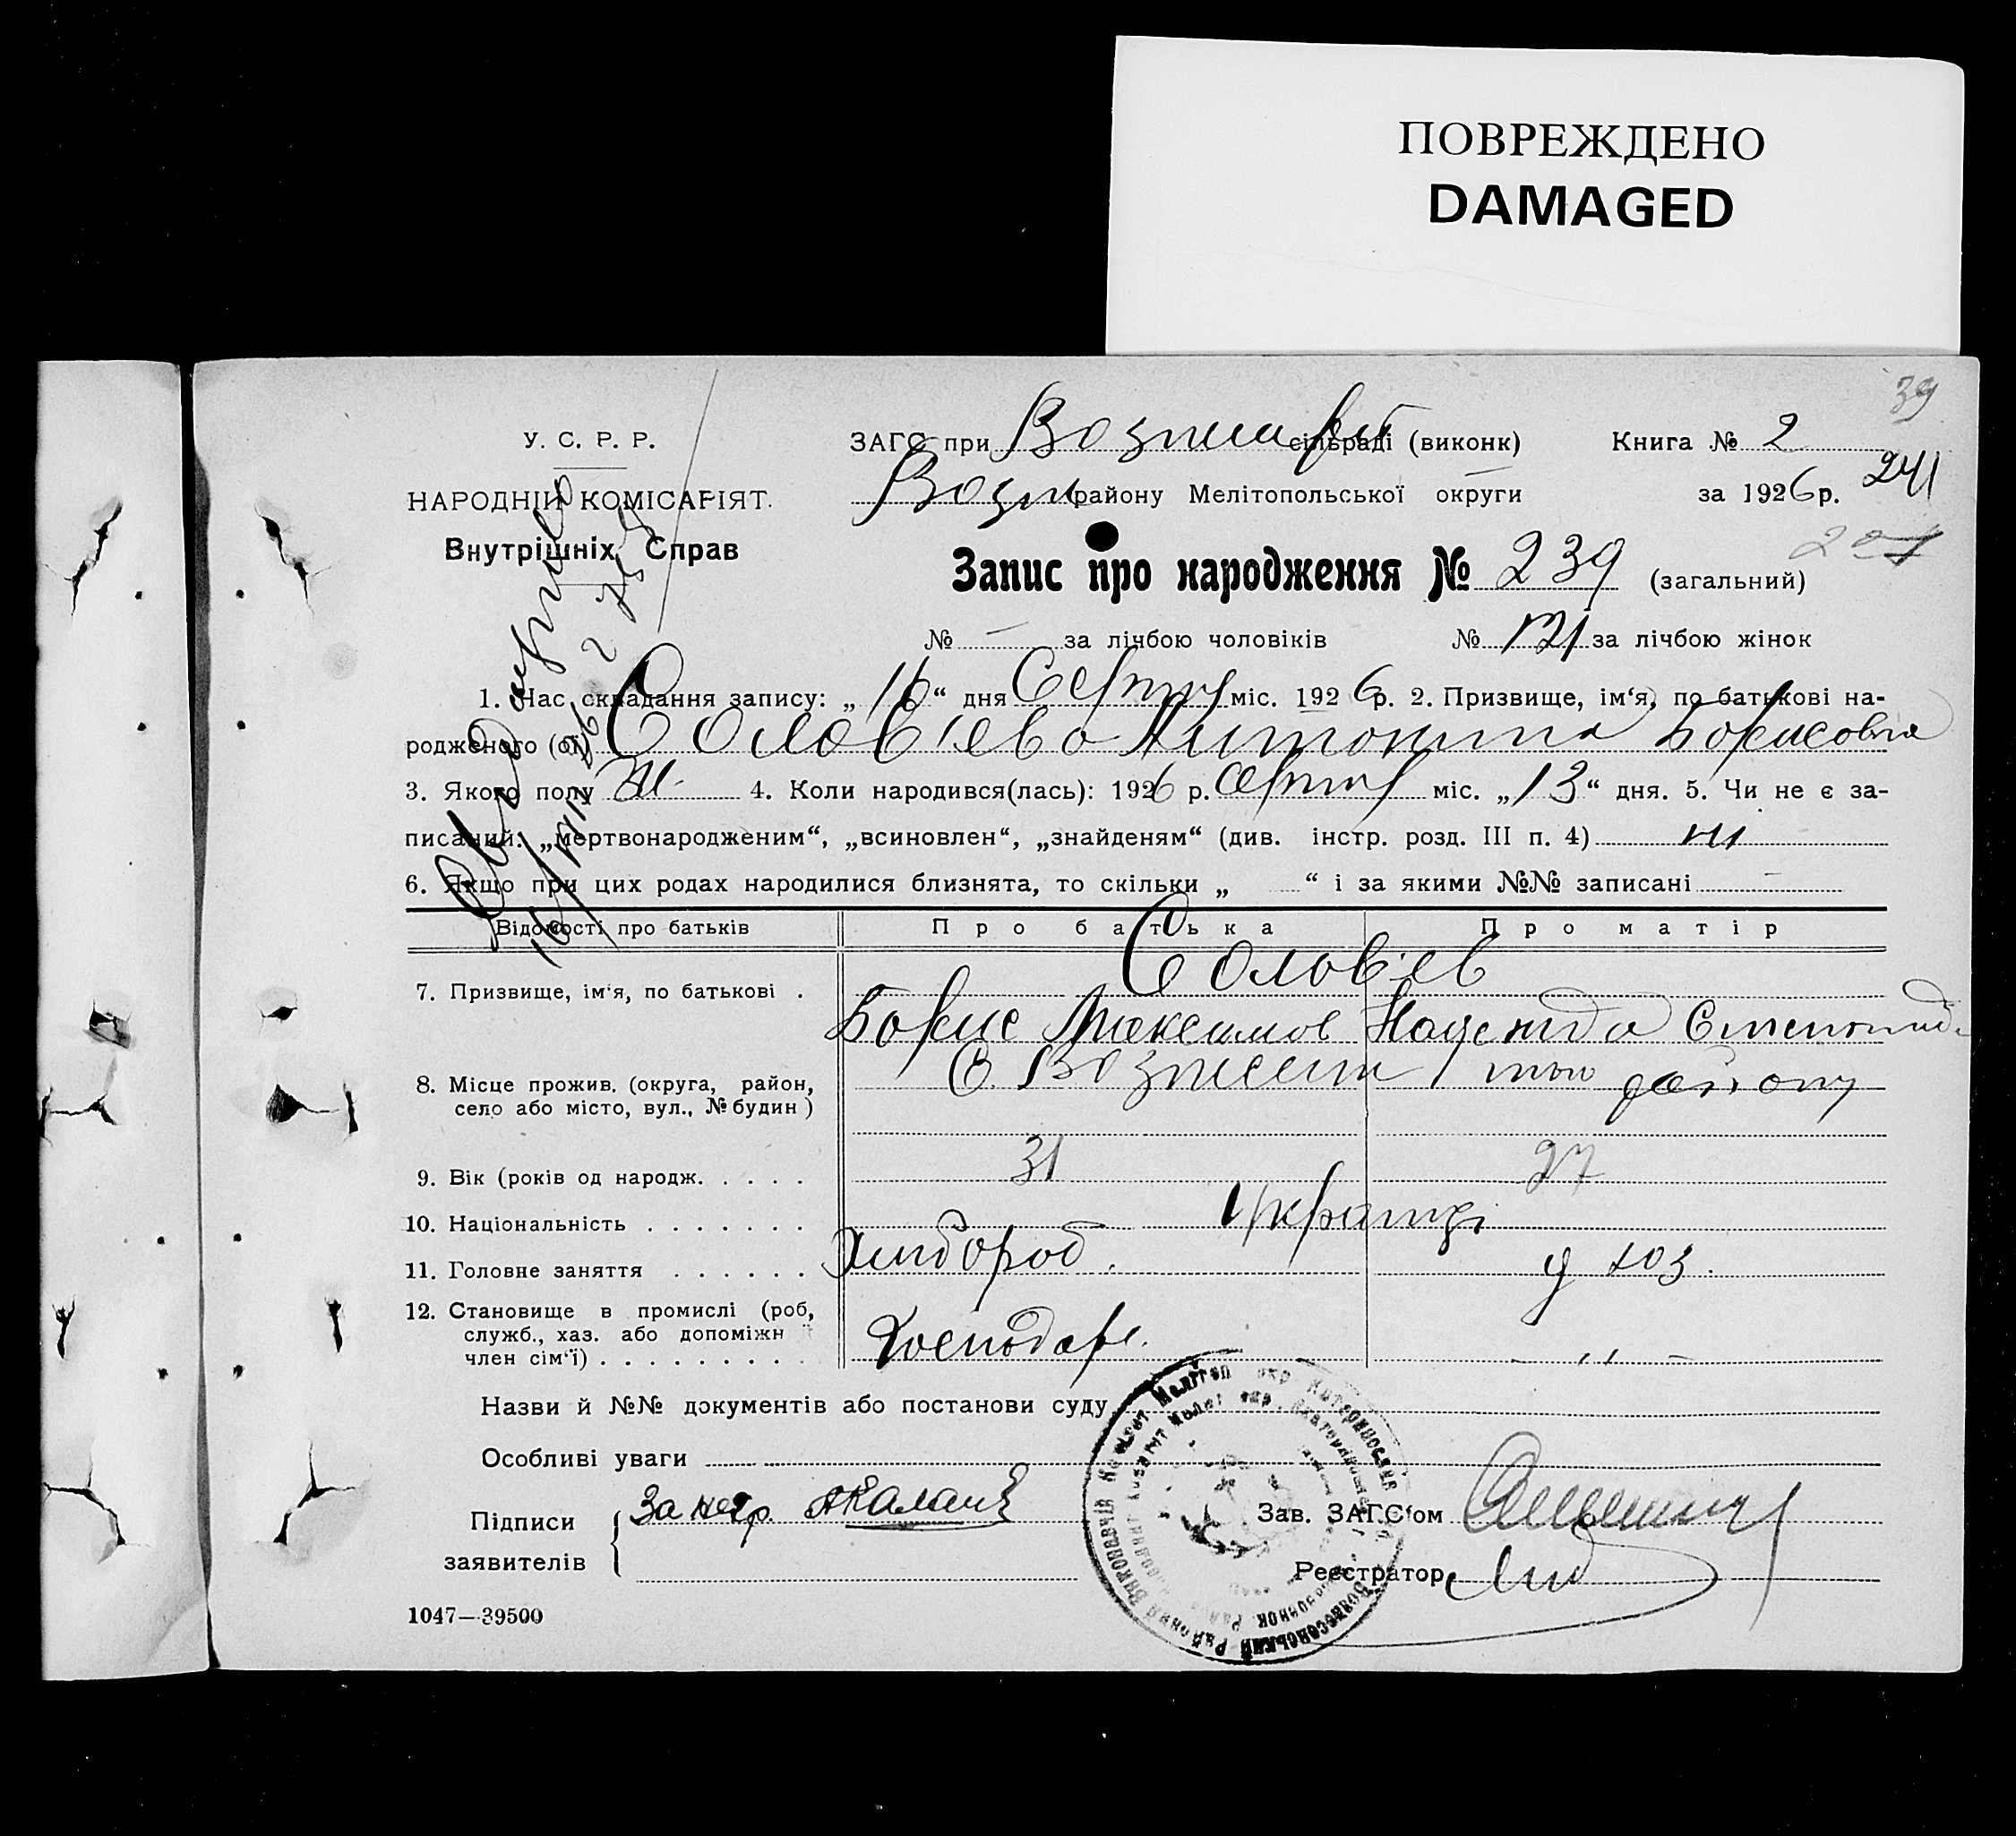 ПОВРЕЖДЕНО
DAMAGED
39
У. С. Р. Р.
НАРОДНІЙ КОМІСАРІЯТ.
Внутрішніх Справ
ЗАГС при Вознес сільраді (виконк) Книга № 2
Возн району Мелітопольської округи за 1926 р.
241
Запис про народження № 239 (загальний)
№ — за лічбою чоловіків № 121 за лічбою жінок
1. Час складання запису: „16“ дня Серпня міс. 1926 р. 2. Призвище, ім‘я, по батькові на-
родженого (ої) Солов'єва Антонина Борисовна
3. Якого полу Ж. 4. Коли народився(лась): 1926 р. серпня міс. „13“ дня. 5. Чи не є за-
писаний: „мертвонародженим“, „всиновлен“, „знайденям“ (див. інстр. розд. III п. 4) ні
6. Якщо при цих родах народилися близнята, то скільки „ “ і за якими №№ записані —
Відомості про батьків Про батька Про матір
7. Призвище, ім‘я, по батькові . Солов'єв
Борис Максимов Надежда Степанид
8. Місце прожив. (округа, район, село або місто, вул., № будин) С. Вознесен району
9. Вік (років од народж. . . . . 31 27
10. Національність . . . . . . . Українці
11. Головне заняття . . . . . . Хлібороб. у хоз.
12. Становище в промислі (роб, служб., хаз. або допоміжн член сім‘ї) . . . . . . . . . . Господарь. - „ -
Назви й №№ документів або постанови суду
Особливі уваги
Підписи заявителів За негр.
Зав. ЗАГС‘ом
Реєстратор
1047—39500